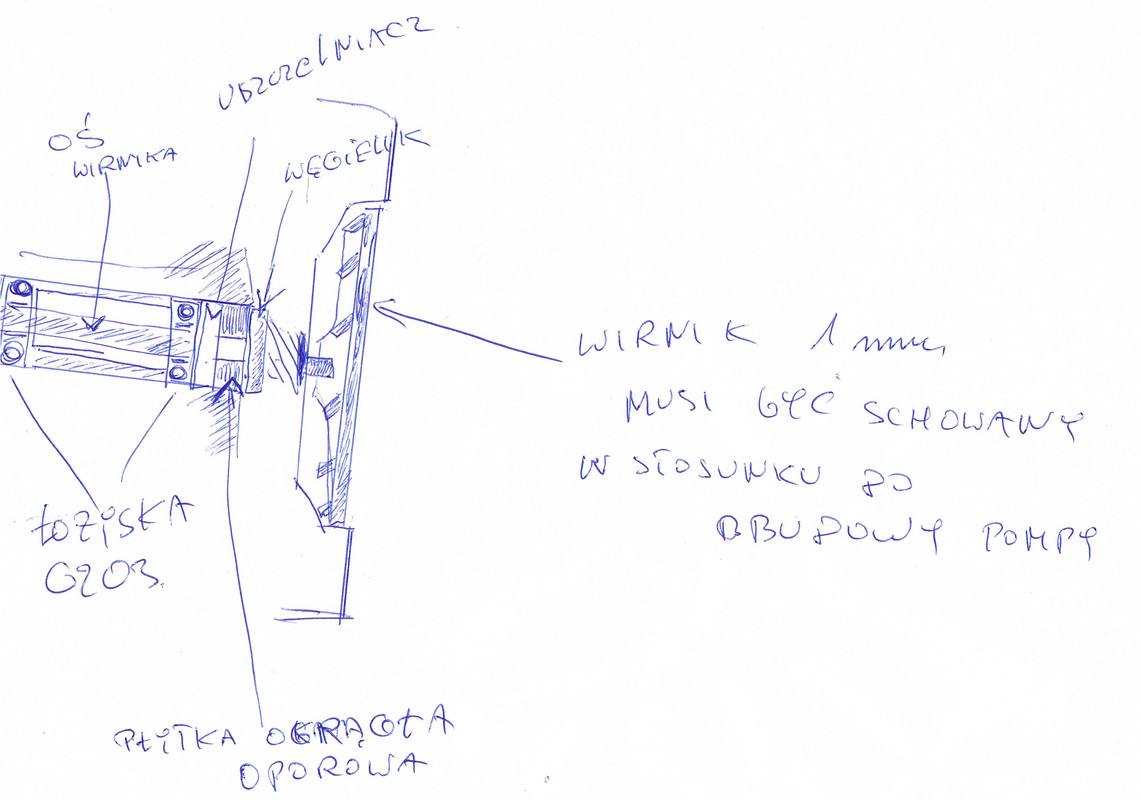 USZCZELNIACZ
OŚ
WIRNIKA
WĘGIELEK
WIRNIK 1 mm
MUSI BYĆ SCHOWANY
W STOSUNKU DO
OBUDOWY POMPY
ŁOŻYSKA
6203.
PŁYTKA OKRĄGŁA
OPOROWA